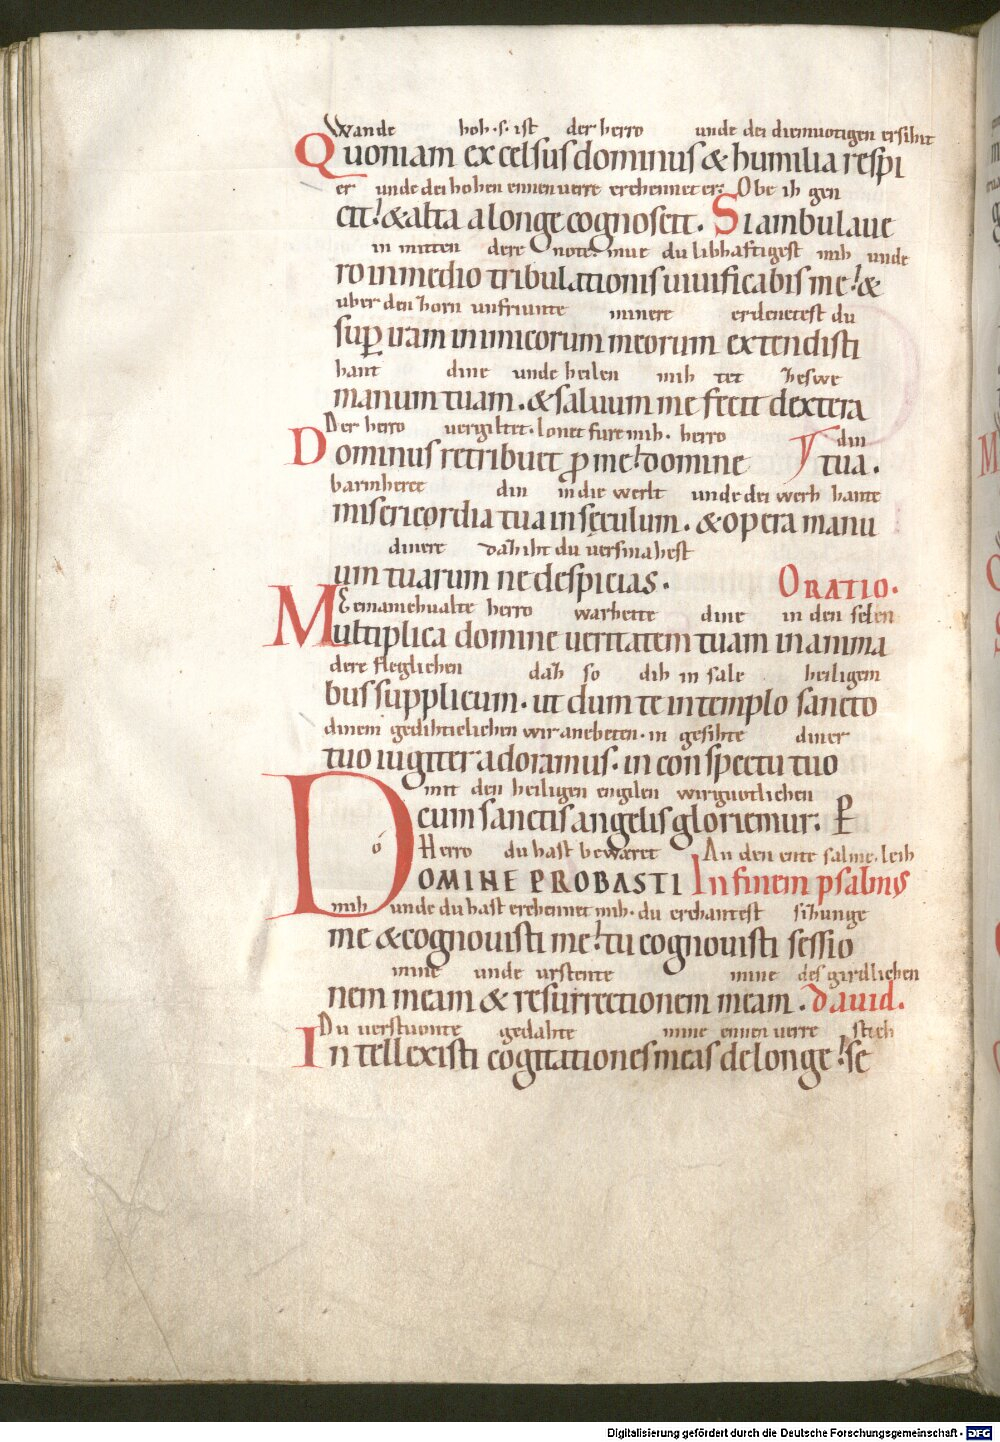 Wande hoh·s·ist der herro unde dei diemuotigen ersihit
Quoniam excelsus dominus & humilia respi
er unde dei hohen ennen uerre erchennet er· Obe ih gen
cit: & alta a longe cognoscit. Si ambulaue
in mitten dere note· mue du libhaftigest mih unde
ro in medio tribulationis uiuificabis me: &
uber den zorn unfriunte minere erdenetest du
sup iram inimicorum meorum extendisti
hant dine unde heilen mih tet zeswe
manum tuam. & saluum me fecit dextera
Der herro uergiltet· lonet fure mih· herro din
Dominus retribuet p me: domine tua.
barmherce din in die werlt unde dei werh hante
misericordia tua in sęculum. & opera manu
dinere daz iht du uersmahest
um tuarum ne despicias. ORATIO.
Gemanehualte herro warheite dine in den selen
Multiplica domine ueritatem tuam in anima
dere fleglichen daz so dih in sale heiligem
bus supplicum. ut dum te in templo sancto
dinem gedihticlichen wir anebeten· in gesihte diner
tuo iugiter adoramus. in conspectu tuo
mit den heiligen engilen wir guotlichen
cum sanctis angelis gloriemur. P
ó Herro du hast bewaret An den ente salme· leih
DOMINE PROBASTI In finem psalmus
mih unde du hast erchennet mih· du erchantest sizunge
me & cognouisti me: tu cognouisti sessio
mine unde urstente mine des girdlichen
nem meam & resurrectionem meam. dauid.
Du uerstuonte gedahte mine ennen uerre stich
Intellexisti cogitationes meas de longe: se
Digitalisierung gefördert durch die Deutsche Forschungsgemeinschaft - DFG